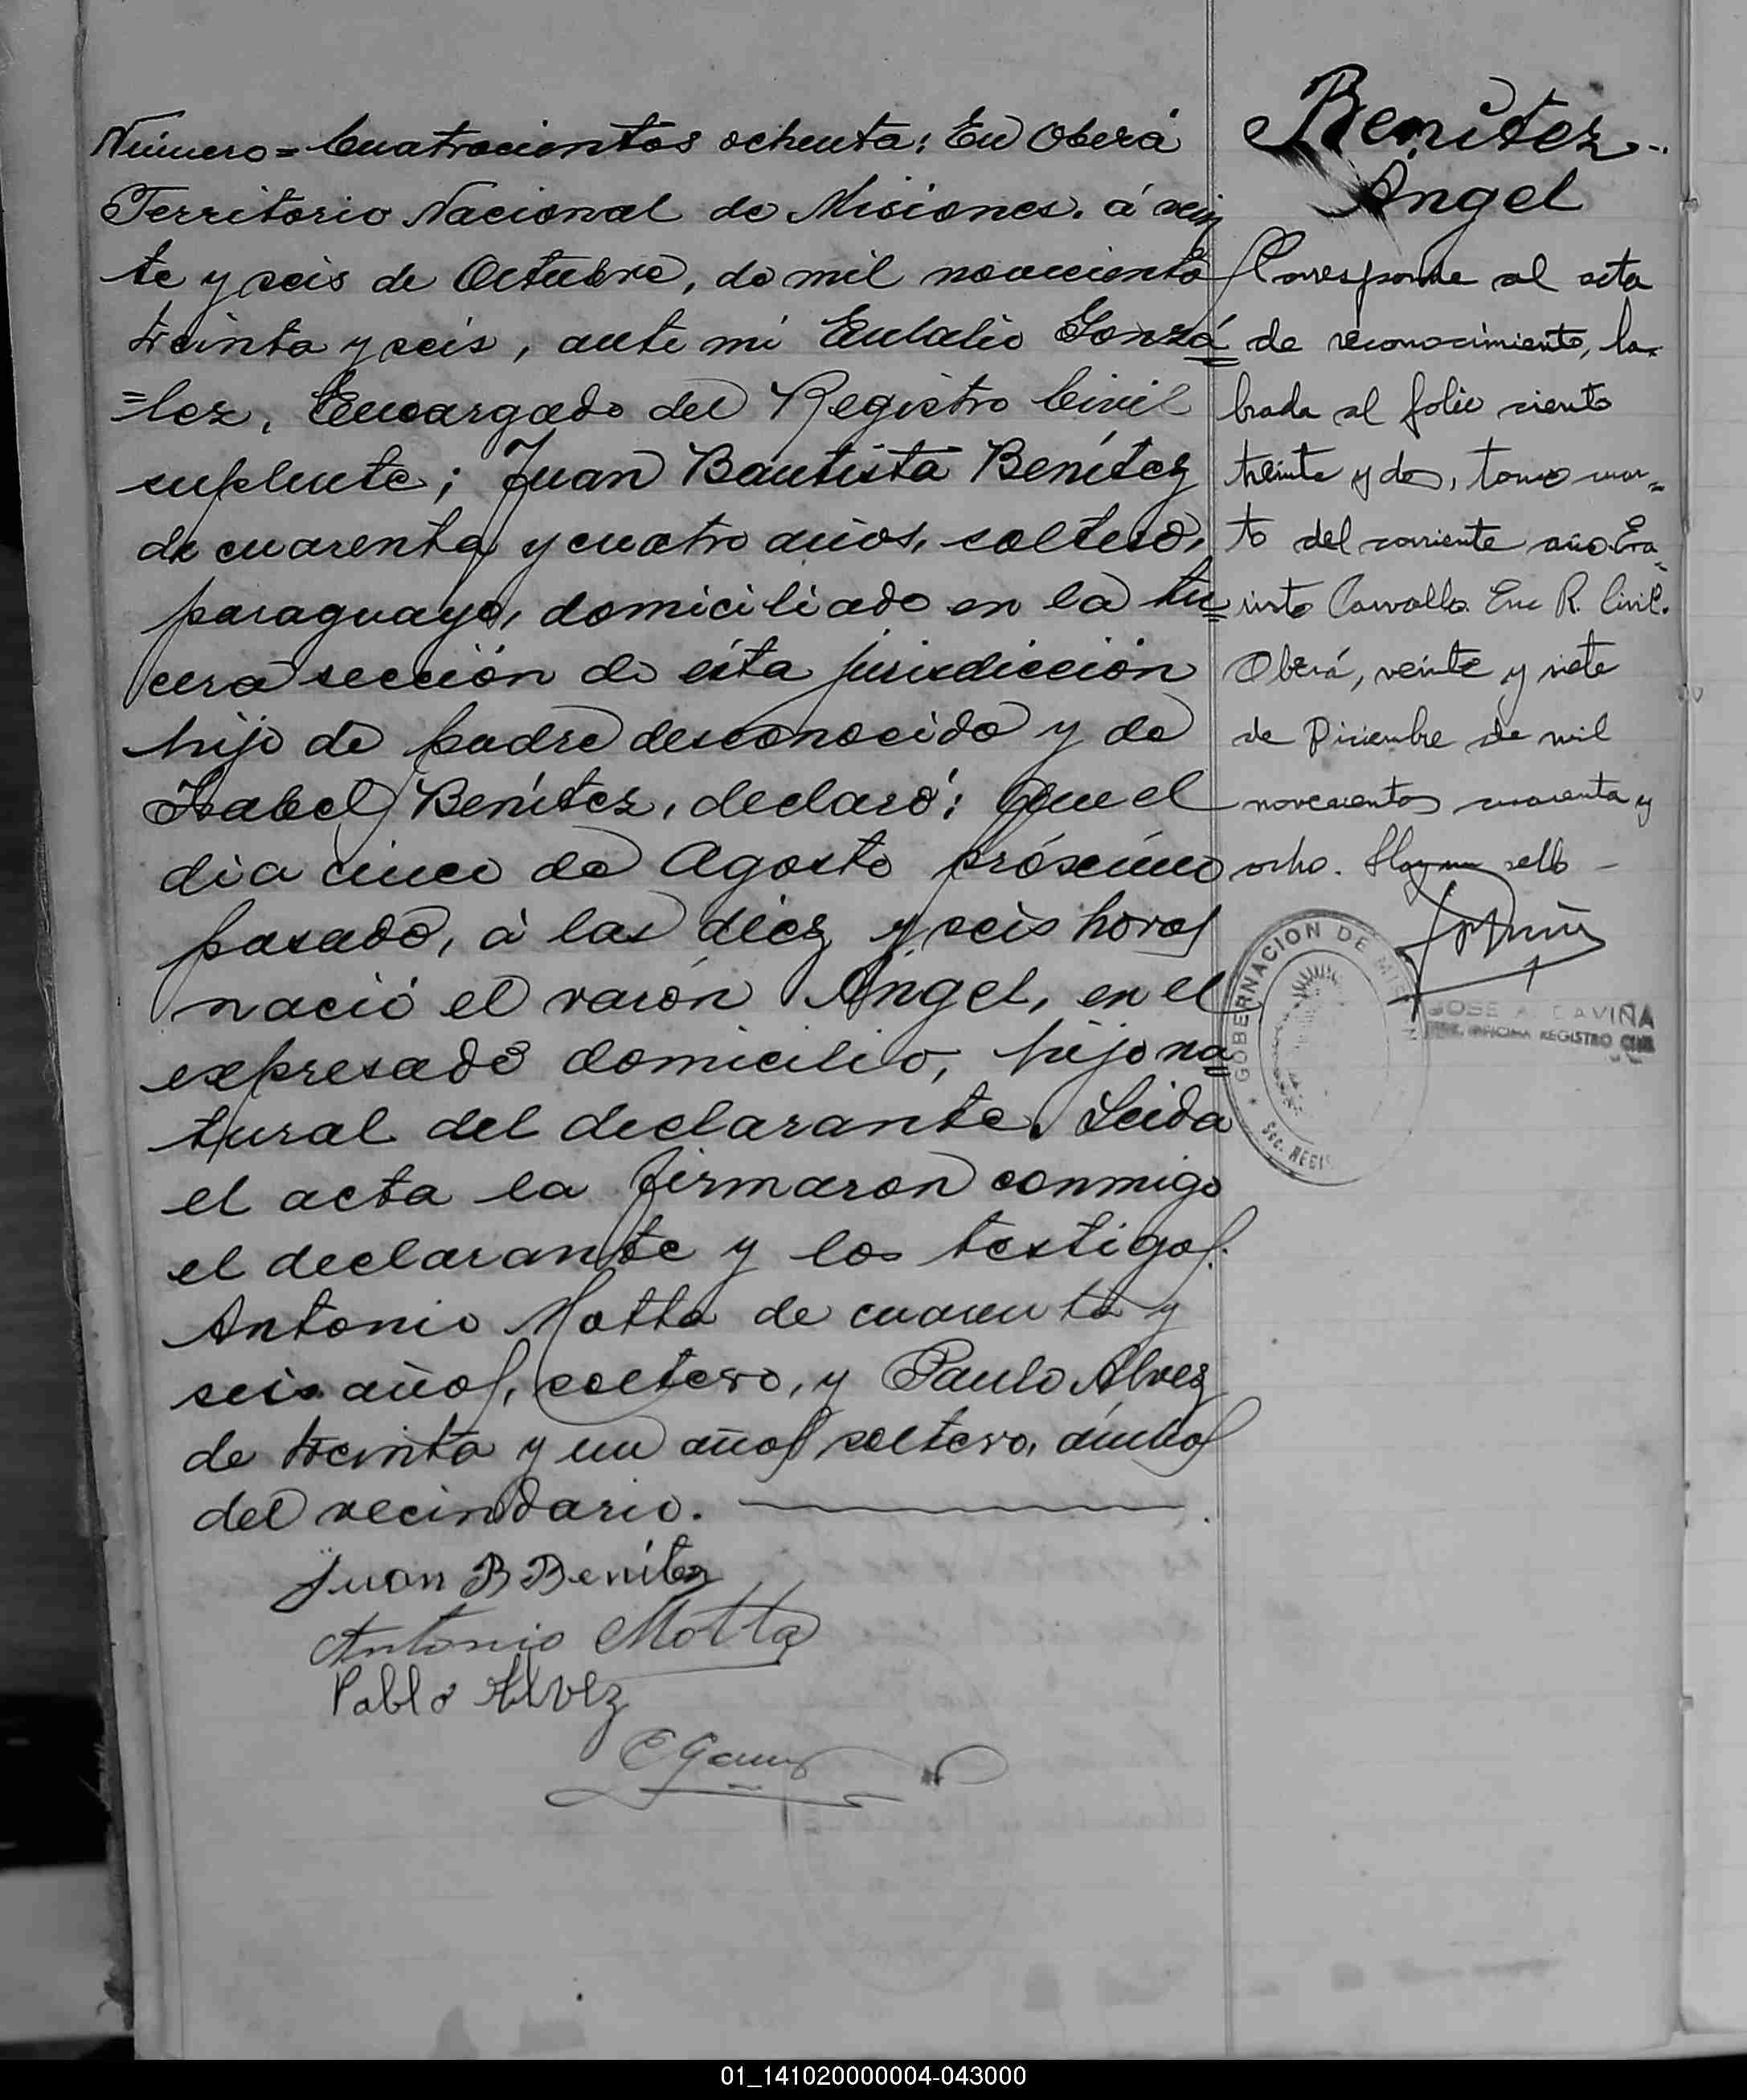 Número = Cuatrocientos ochenta: En Oberá
Territorio Nacional de Misiones. á vein
te y seis de Octubre, de mil novecientos
treinta y seis, ante mi Eulalio Gonzá
=lez, Encargado del Registro Civil
suplente; Juan Bautista Benítez
de cuarenta y cuatro años, soltero,
paraguayo, domiciliado en la ter=
cera sección de ésta jurisdicción
hijo de padre desconocido y de
Isabel Benítez, declaró: Que el
dia cinco de Agosto próximo
pasado, á las diez y seis horas
nació el varón Ángel, en el
expresado domicilio, hijo na=
tural del declarante. Leida
el acta la firmaron conmigo
el declarante y los testigos.
Antonio Motta de cuarenta y
seis años, soltero, y Paulo Alvez
de treinta y un años soltero, ámbos
del vecindario.
Juan B Benítez
Antonio Motta
Pablo Alvez
Benítez..
Ángel
Corresponde al acta
de reconocimiento, la=
brada al folio ciento
treinta y dos, tomo cuar=
to del corriente año. Eva=
risto Carvallo. Enc R. Civil.
Oberá, veinte y siete
de Diciembre de mil
novecientos cuarenta y
ocho. Hay un sello -
GOBERNACION DE
SEC. REGIS
JOSE A. DAVIÑA
OFICINA REGISTRO CIVIL
01_141020000004-043000